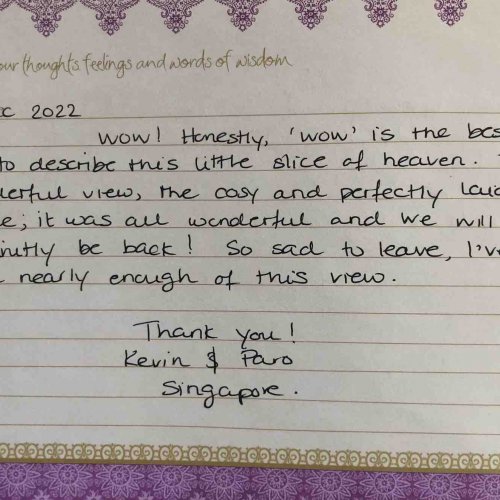 our thoughts feelings and words of wisdom
C 2022
WOW! Honestly, 'wow' is the bes
to describe this little slice of heaven.
derful view, the cosy and perfectly laid
e; it was all wonderful and we will
nitly be back! So sad to leave, I'v
nearly enough of this view.
Thank you!
Kevin & Paro
Singapore.